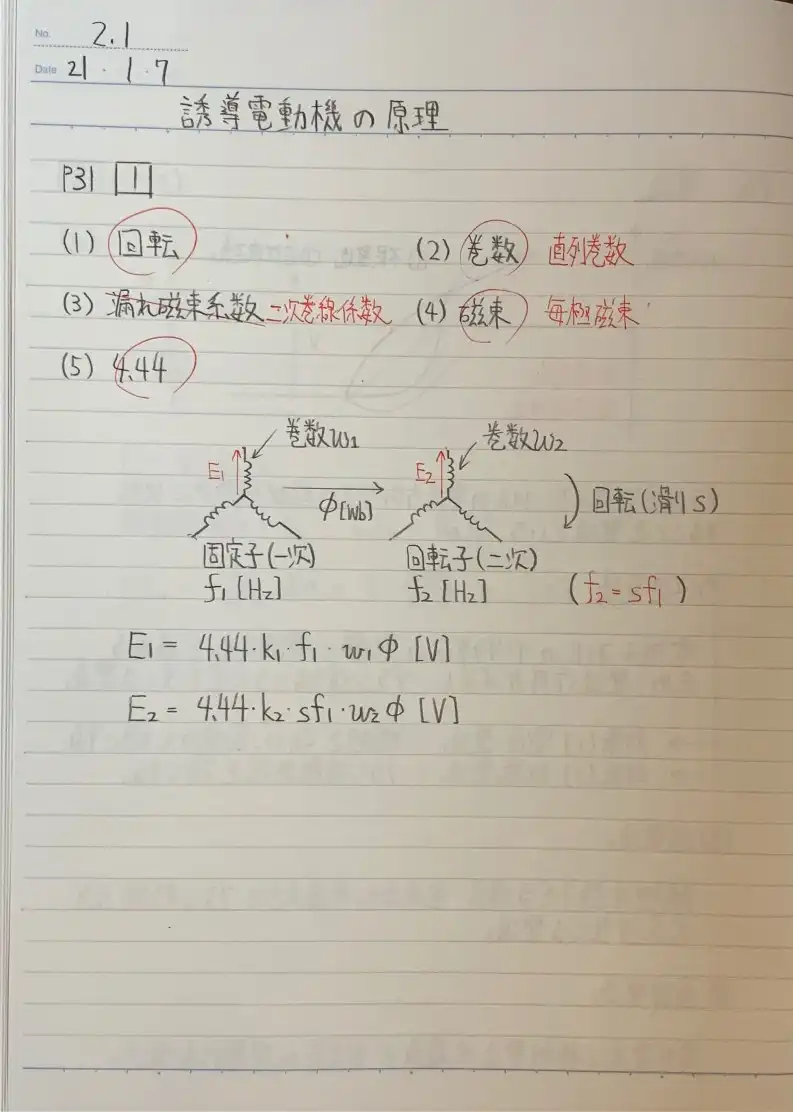 No. 2.1
Date 21・1・7
誘導電動機の原理
P31 1
(1) 回転 (2) 巻数 直列巻数
(3) 漏れ磁束系数 二次巻線係数 (4) 磁束 毎極磁束
(5) 4.44
巻数w1 巻数w2
E1 E2
φ[Wb] 回転(滑りs)
固定子(一次) 回転子(二次)
f1[Hz] f2[Hz] (f2=sf1)
E1= 4.44・k1・f1・w1φ [V]
E2= 4.44・k2・sf1・w2φ [V]